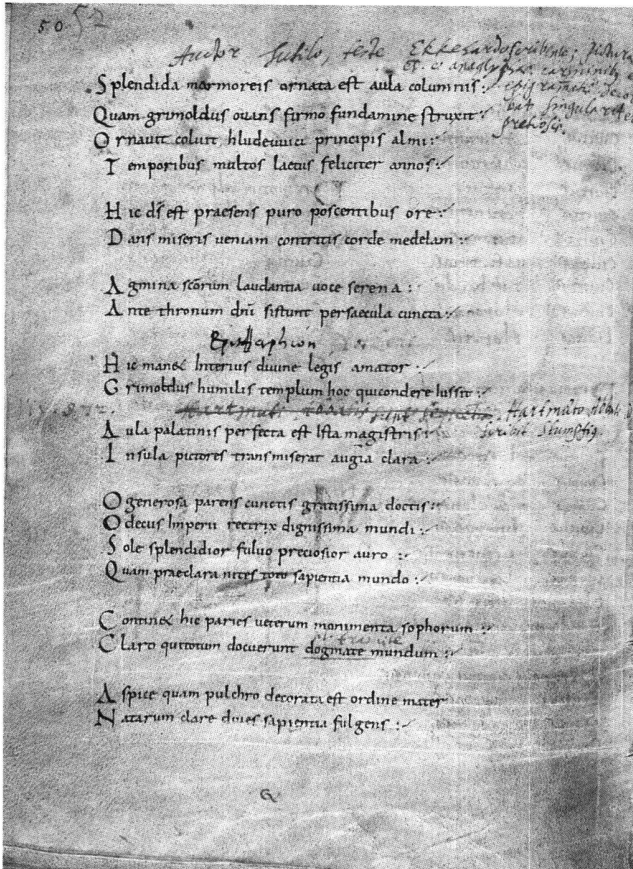 50 52
Auctor Tutilo, teste Ekkehardo scribente; pictura
carminibus et
epigrammat
singularite
pretiosis.
Splendida marmoreis ornata est aula columnis
Quam grimoldus ouans firmo fundamine struxit
Ornauit coluit hludeuuici principis almi
Temporibus multos laetus feliciter annos
Hic ds est praesens puro poscentibus ore
Dans miseris ueniam contritis corde medelam
Agmina scorum laudantia uoce serena
Ante thronum dni sistunt persaecula cuncta
Epitaphion
Hic manet Interius diuine legis amator
Grimoldus humilis templum hoc quicondere Iussit
Hartmoto Abbati
Aula palatinis perfecta est Ista magistris
scribit Stumpfig.
Insula pictores transmiserat augia clara
O generosa parens cunctis gratissima doctis
O decus Imperii rectrix dignissima mundi
Sole splendidior fuluo preciosior auro
Quam praeclara nites toto sapientia mundo
Continet hic paries ueterum monimenta sophorum
Claro quitotum docuerunt dogmate mundum
Aspice quam pulchro decorata est ordine mater
Natarum clare diues sapientia fulgens